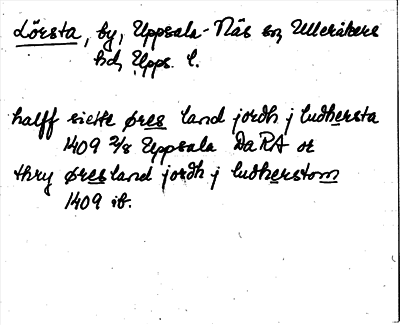 Lörsta, by, Uppsala-Näs sn, Ulleråkers
hd, Upps. l.
halff siette øres land jordh j ludhersta
1409 2/8 Uppsala DaRA or
thry øres land jordh j ludherstom
1409 ib.